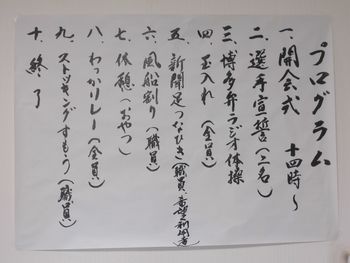 プログラム
一、開会式 十四時〜
二、選手宣誓(二名)
三、博多弁ラジオ体操
四、玉入れ(全員)
五、新聞足つなひき(職員、希望利用者)
六、風船割り(職員)
七、休憩(おやつ)
八、わっかリレー(全員)
九、ストッキングすもう(職員)
十、終了